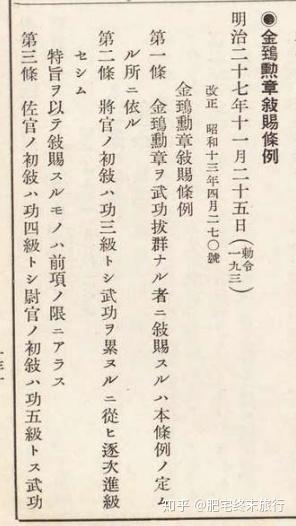 ●金鵄勲章敍賜條例
明治二十七年十一月二十五日(勅令一九三)
改正 昭和十三年四月二七〇號
金鵄勲章敍賜條例
第一條 金鵄勲章ヲ武功抜群ナル者ニ敍賜スルハ本條例ノ定ム
ル所ニ依ル
第二條 將官ノ初敍ハ功三級トシ武功ヲ累ヌルニ從ヒ逐次進級
セシム
特旨ヲ以テ敍賜スルモノハ前項ノ限ニアラス
第三條 佐官ノ初敍ハ功四級トシ尉官ノ初敍ハ功五級トス武功
知乎 @肥宅終末旅行